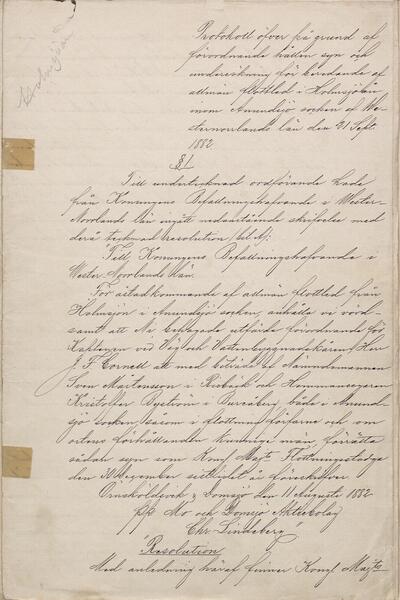 Holmsjöån
Protokoll öfver på grund af
förordnande hållen syn och
undersökning för beredande af
allmän flottled i Holmsjöån
inom Anundsjö socken af We-
sternorrlands län den 21 Sept.
1882.
§ 1
Till undertecknad ordförande hade
från Konungens Befallningshafvande i Wester-
Norrlands län ingått nedanstående skrifvelse med
derå tecknad resolution
Till Konungens Befallningshafvande i
Wester Norrlands Län.
För åstadkommande af allmän flottled från
Holmsjön i Anundsjö socken, anhålla vi vörd-
samt att Ni behagade utfärda förordnande för
Kaptenen vid Väg och Vattenbyggnadskåren Herr
J. F. Cornell att med biträde af Nämndemannen
Sven Mårtensson i och Hemmansegaren
Kristoffer Byström i både i Anund-
sjö socken, såsom i flottningsförfarne och om
ortens förhållanden kunnige män, förrätta
sådan syn som Kongl Majts Flottningsstadga
den 30 December sistlidet år föreskrifver
Örnsköldsvik & Domsjö den 11 Augusti 1882
pp Mo och Domsjö Aktiebolag
Chr. Lindeberg"
"Resolution
Med anledning häraf finner Kongl Majts